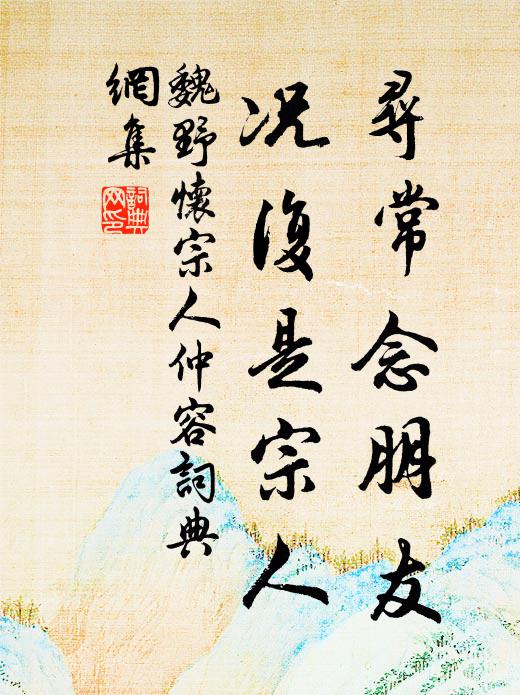 尋常念朋友
況復是宗人
魏野懷宗人仲容詞典
網集
詞典
网印